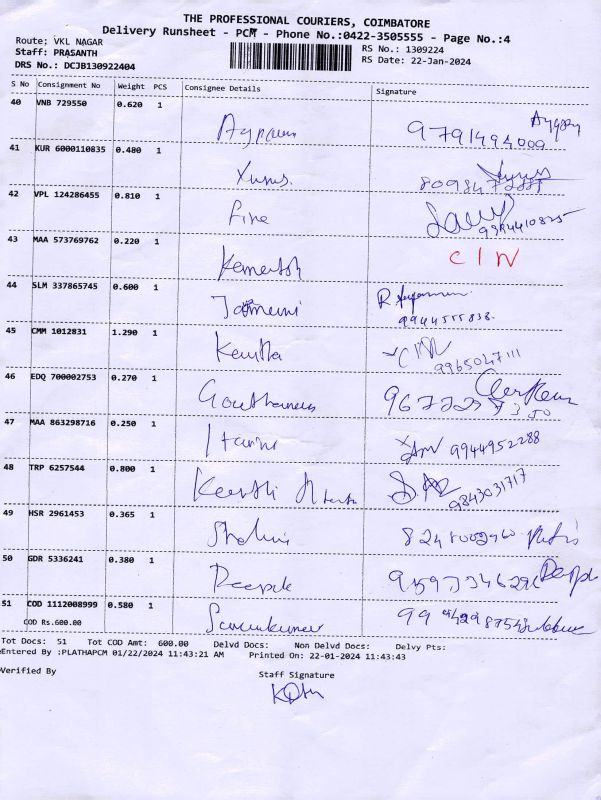 THE PROFESSIONAL COURIERS, COIMBATORE
Delivery Runsheet - PCM - Phone No.:0422-3505555 - Page No.:4
Route; VKL NAGAR
RS No.: 1309224
Staff: PRASANTH
RS Date: 22-Jan-2024
DRS No.: DCJB130922404
S No Consignment No Weight PCS Consignee Details Signature
40 VNB 729550 0.620 1
9791494009
41 KUR 6000110835 0.480 1 Yunus.
42 VPL 124286455 0.810 1 Fine
9984410825
43 MAA 573769762 0.220 1
C I N
44 SLM 337865745 0.600 1
9944555838.
45 CMM 1012831 1.290 1 Kavitha
9965047111
46 EDQ 700002753 0.270 1
47 MAA 863298716 0.250 1
9944952288
48 TRP 6257544 0.800 1 Keerthi
9843031717
49 HSR 2961453 0.365 1 Shalini
50 GDR 5336241 0.380 1 Deepak
51 COD 1112008999 0.580 1
COD Rs.600.00
Tot Docs: 51 Tot COD Amt: 600.00 Delvd Docs: Non Delvd Docs: Delvy Pts:
Entered By :PLATHAPCM 01/22/2024 11:43:21 AM Printed On: 22-01-2024 11:43:43
Verified By Staff Signature